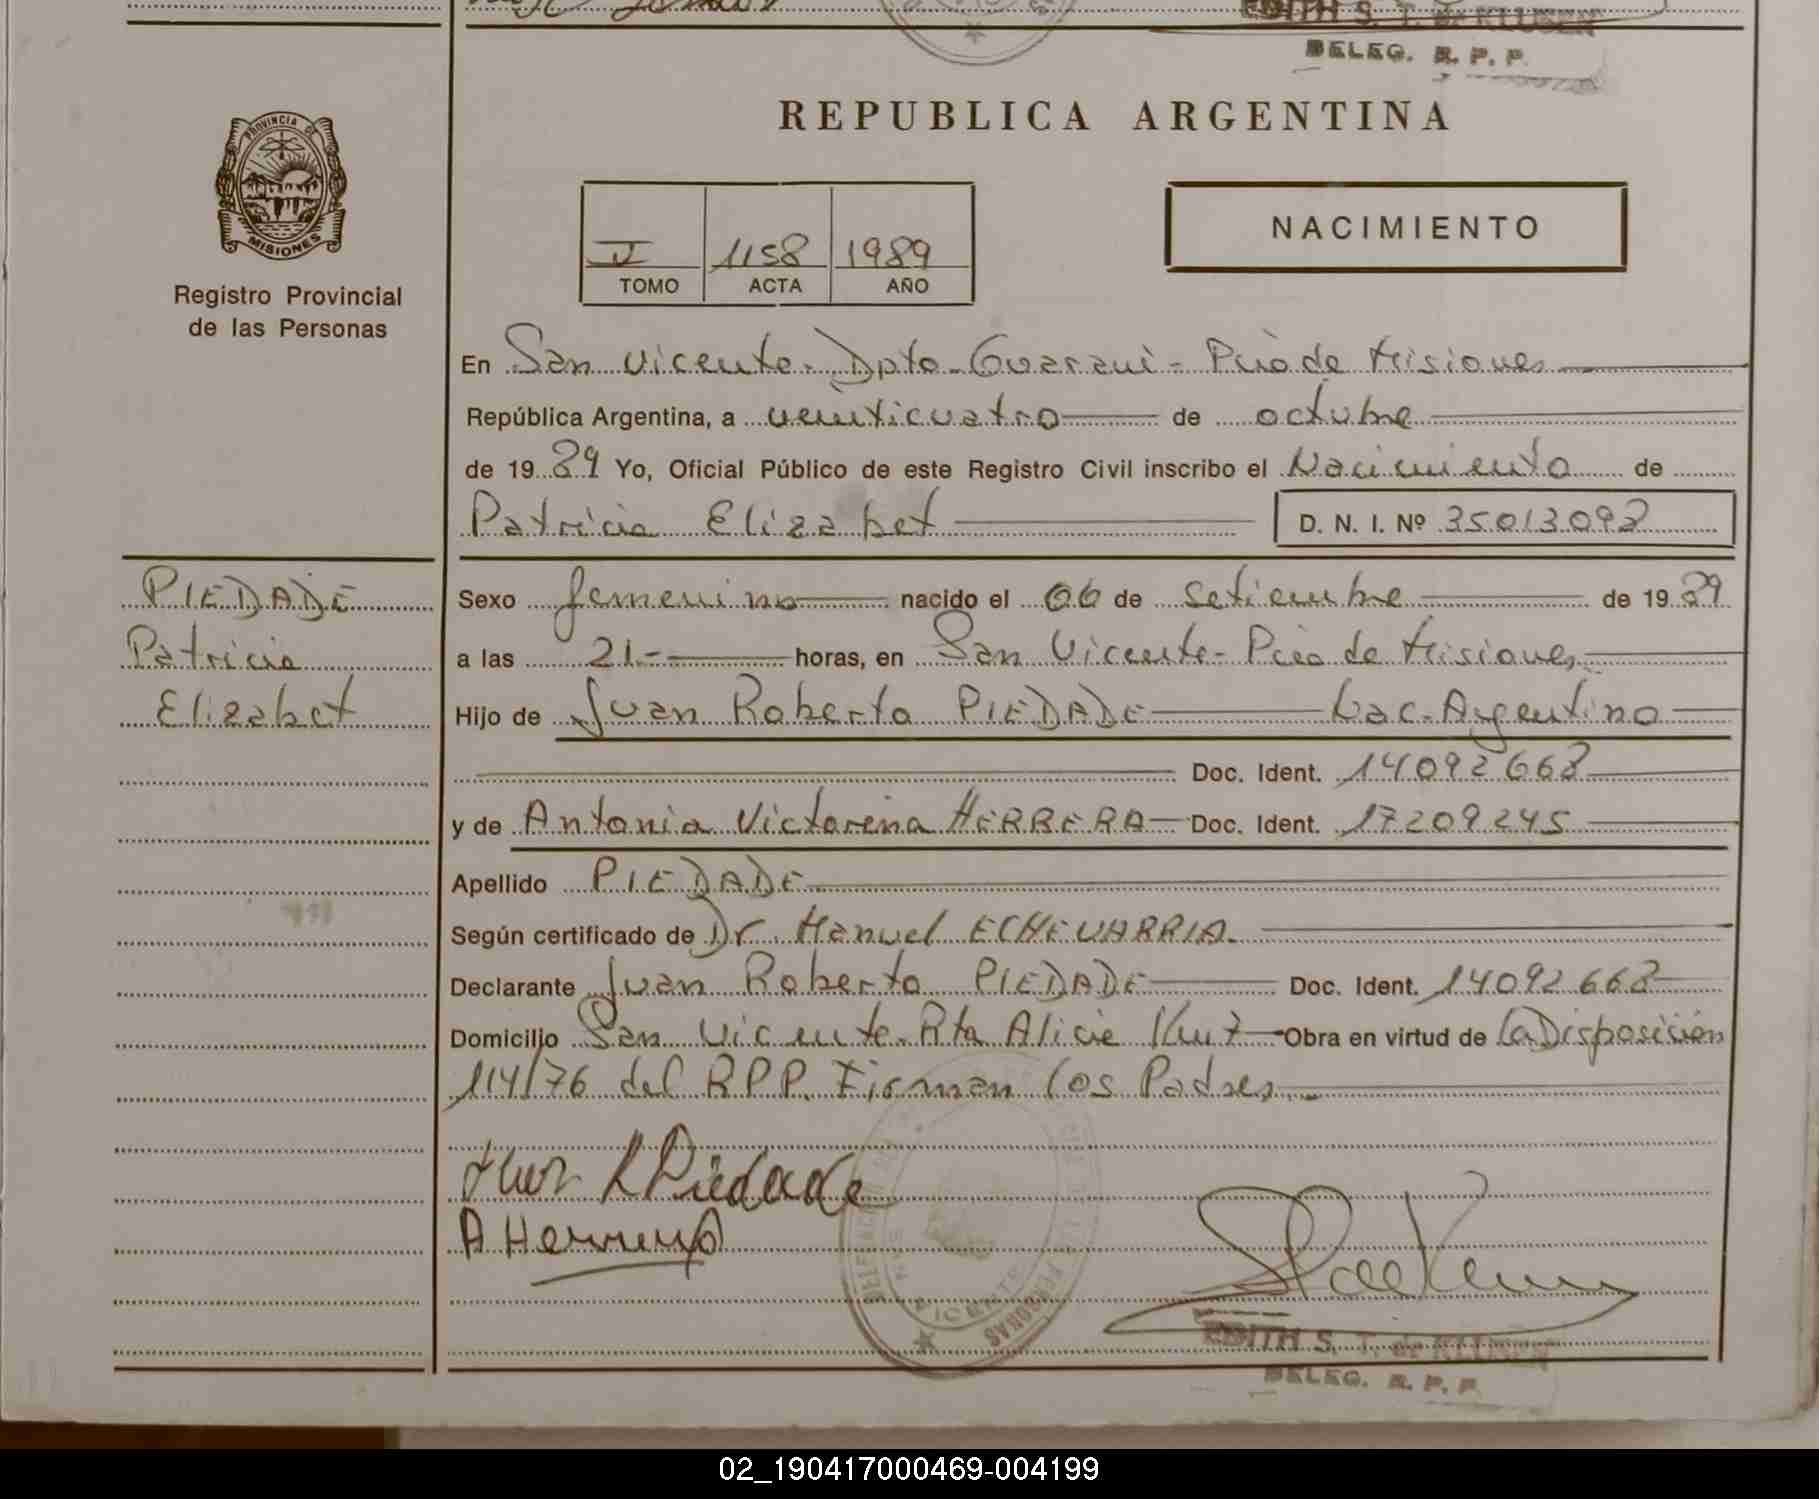 EDITH S. T. de KLUSEN
DELEG. R. P. P.
REPUBLICA ARGENTINA
PROVINCIA DE
MISIONES
Registro Provincial
de las Personas
1158 1989
TOMO ACTA AÑO
NACIMIENTO
En San Vicente - Dpto - Guarani - Pcia de Misiones
República Argentina, a veinticuatro de octubre
de 1989 Yo, Oficial Público de este Registro Civil inscribo el Nacimiento de
Patricia Elizabet D. N. I. Nº 35013098
PIEDADE
Patricia
Elizabet
Sexo femenino nacido el 06 de setiembre de 1989
a las 21.- horas, en San Vicente - Pcia de Misiones
Hijo de Juan Roberto PIEDADE Nac. Argentino
Doc. Ident. 14092668
y de Antonia Victorina HERRERA Doc. Ident. 17209245
Apellido PIEDADE
Según certificado de Dr. Manuel ECHEVARRIA.
Declarante Juan Roberto PIEDADE Doc. Ident. 14092668
Domicilio San Vicente - Rta Alicia Obra en virtud de la Disposición
114/76 del R.P.P. Firman los Padres.
Juan R Piedade
A Herrera
EDITH S. T. de KLUSEN
DELEG. R. P. P.
02_190417000469-004199